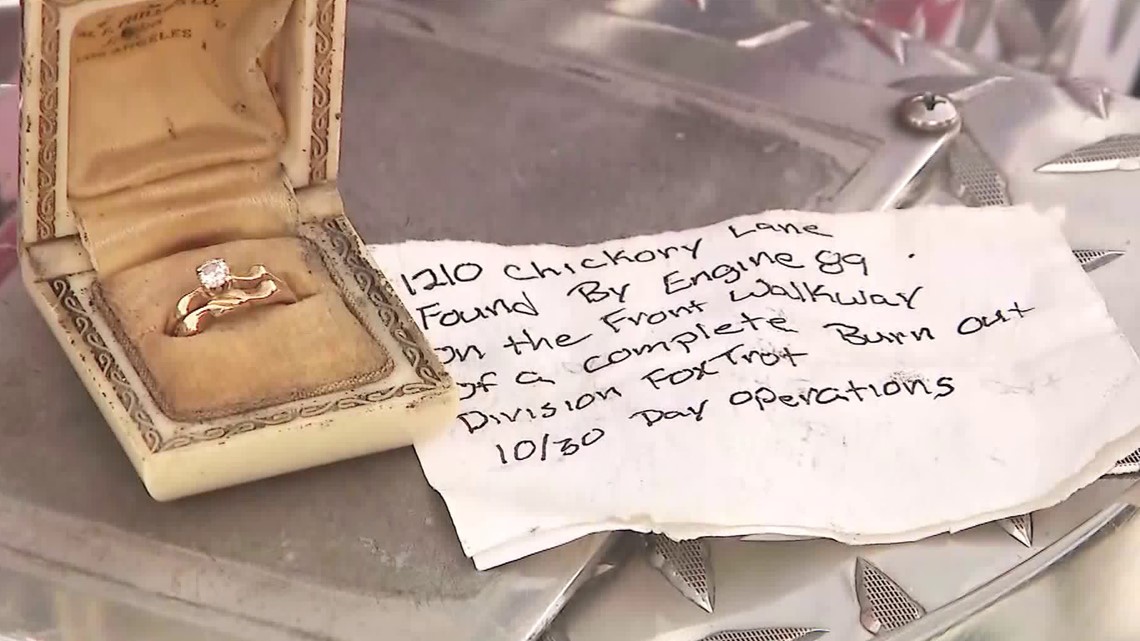 LOS ANGELES
1210 Chickory Lane
Found By Engine 89
on the Front Walkway
of a complete Burn out
Division FoxTrot
10/30 Day Operations